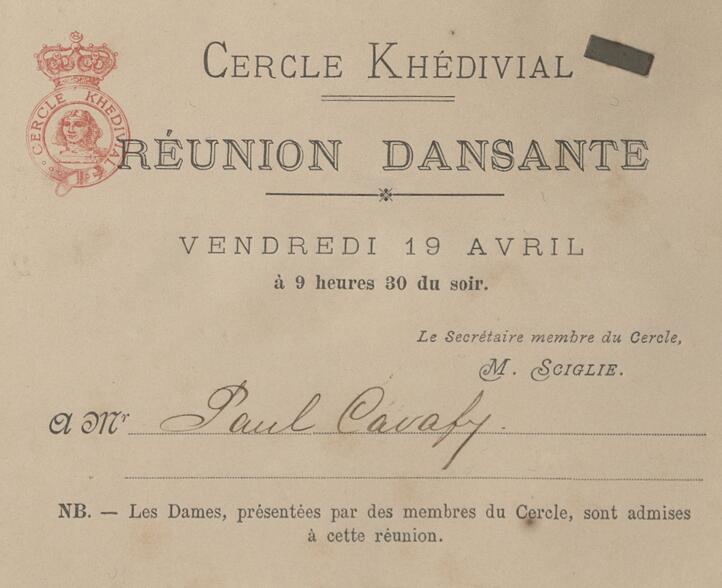 CERCLE KHÉDIVIAL
CERCLE KHEDIVIAL
RÉUNION DANSANTE
VENDREDI 19 AVRIL
à 9 heures 30 du soir.
Le Secrétaire membre du Cercle,
M. SCIGLIE.
A Mr Paul Cavafy.
NB. — Les Dames, présentées par des membres du Cercle, sont admises
à cette réunion.